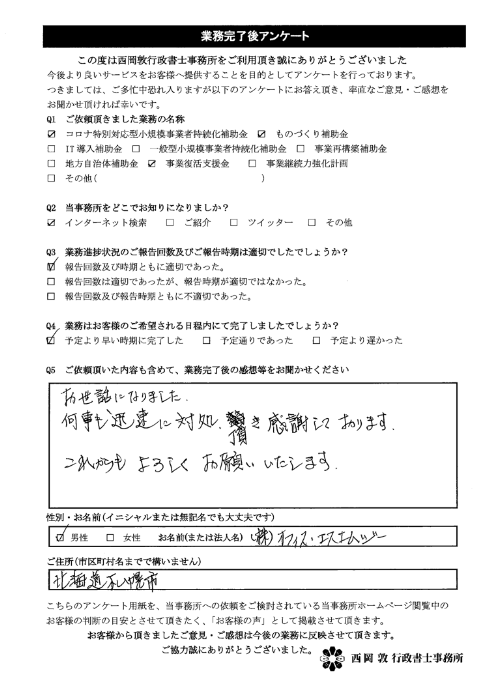 業務完了後アンケート
この度は西岡敦行政書士事務所をご利用頂き誠にありがとうございました
今後より良いサービスをお客様へ提供することを目的としてアンケートを行っております。
つきましては、ご多忙中恐れ入りますが以下のアンケートにお答え頂き、率直なご意見・ご感想を
お聞かせ頂ければ幸いです。
Q1 ご依頼頂きました業務の名称
☑ コロナ特別対応型小規模事業者持続化補助金 ☑ ものづくり補助金
□ IT導入補助金 □ 一般型小規模事業者持続化補助金 □ 事業再構築補助金
□ 地方自治体補助金 ☑ 事業復活支援金 □ 事業継続力強化計画
□ その他( )
Q2 当事務所をどこでお知りになりましたか?
☑ インターネット検索 □ ご紹介 □ ツイッター □ その他
Q3 業務進捗状況のご報告回数及びご報告時期は適切でしたでしょうか?
☑ 報告回数及び時期ともに適切であった。
□ 報告回数は適切であったが、報告時期が適切ではなかった。
□ 報告回数及び報告時期ともに不適切であった。
Q4 業務はお客様のご希望される日程内にて完了しましたでしょうか?
☑ 予定より早い時期に完了した □ 予定通りであった □ 予定より遅かった
Q5 ご依頼頂いた内容も含めて、業務完了後の感想等をお聞かせください
お世話になりました.
何事も迅速に対処、頂き感謝しております.
これからもよろしくお願いいたします.
性別・お名前(イニシャルまたは無記名でも大丈夫です)
☑ 男性 □ 女性 お名前(または法人名) (株)オフィス・エスエムジー
ご住所(市区町村名までで構いません)
北海道札幌市
こちらのアンケート用紙を、当事務所への依頼をご検討されている当事務所ホームページ閲覧中の
お客様の判断の目安とさせて頂きたく、「お客様の声」として掲載させて頂きます。
お客様から頂きましたご意見・ご感想は今後の業務に反映させて頂きます。
ご協力誠にありがとうございました。
西岡 敦 行政書士事務所